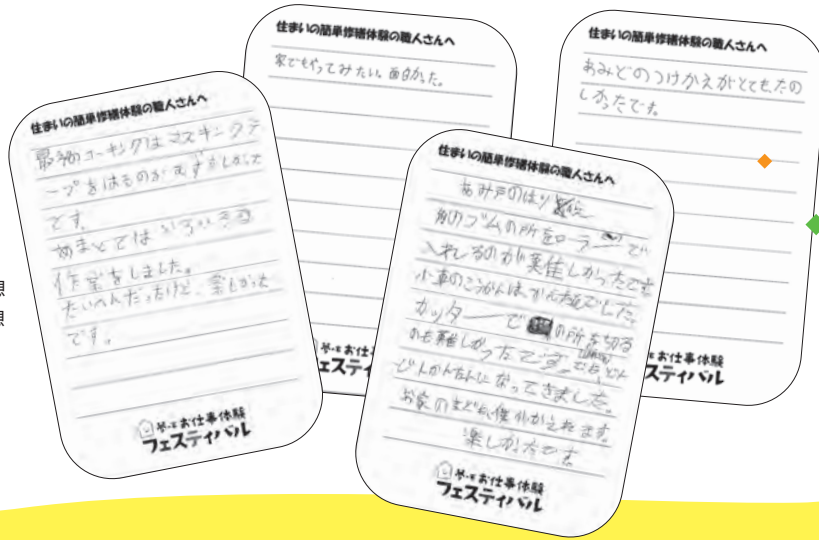 住まいの簡単修繕体験の職人さんへ
最初のコーキングはマスキングテ
ープをはるのがむずかしかった
です。
あまどでは
作業をしました。
たいへんだったけど、楽しかった
です。
お仕事体験
フェスティバル
住まいの簡単修繕体験の職人さんへ
家でもやってみたい。面白かった。
お仕事体験
フェスティバル
住まいの簡単修繕体験の職人さんへ
あみ戸のはり
角のゴムの所をローラーで
入れるのが難しかったです。
小車のこうかんは、かんたんでした。
カッターで の所を切る
のも難しかったです。でも、どん
どんかんたんになってきました。
お家のまども僕がかえれます。
楽しかったです。
お仕事体験
フェスティバル
住まいの簡単修繕体験の職人さんへ
あみどのつけかえがとてもたの
しかったです。
お仕事体験
フェスティバル
想
想